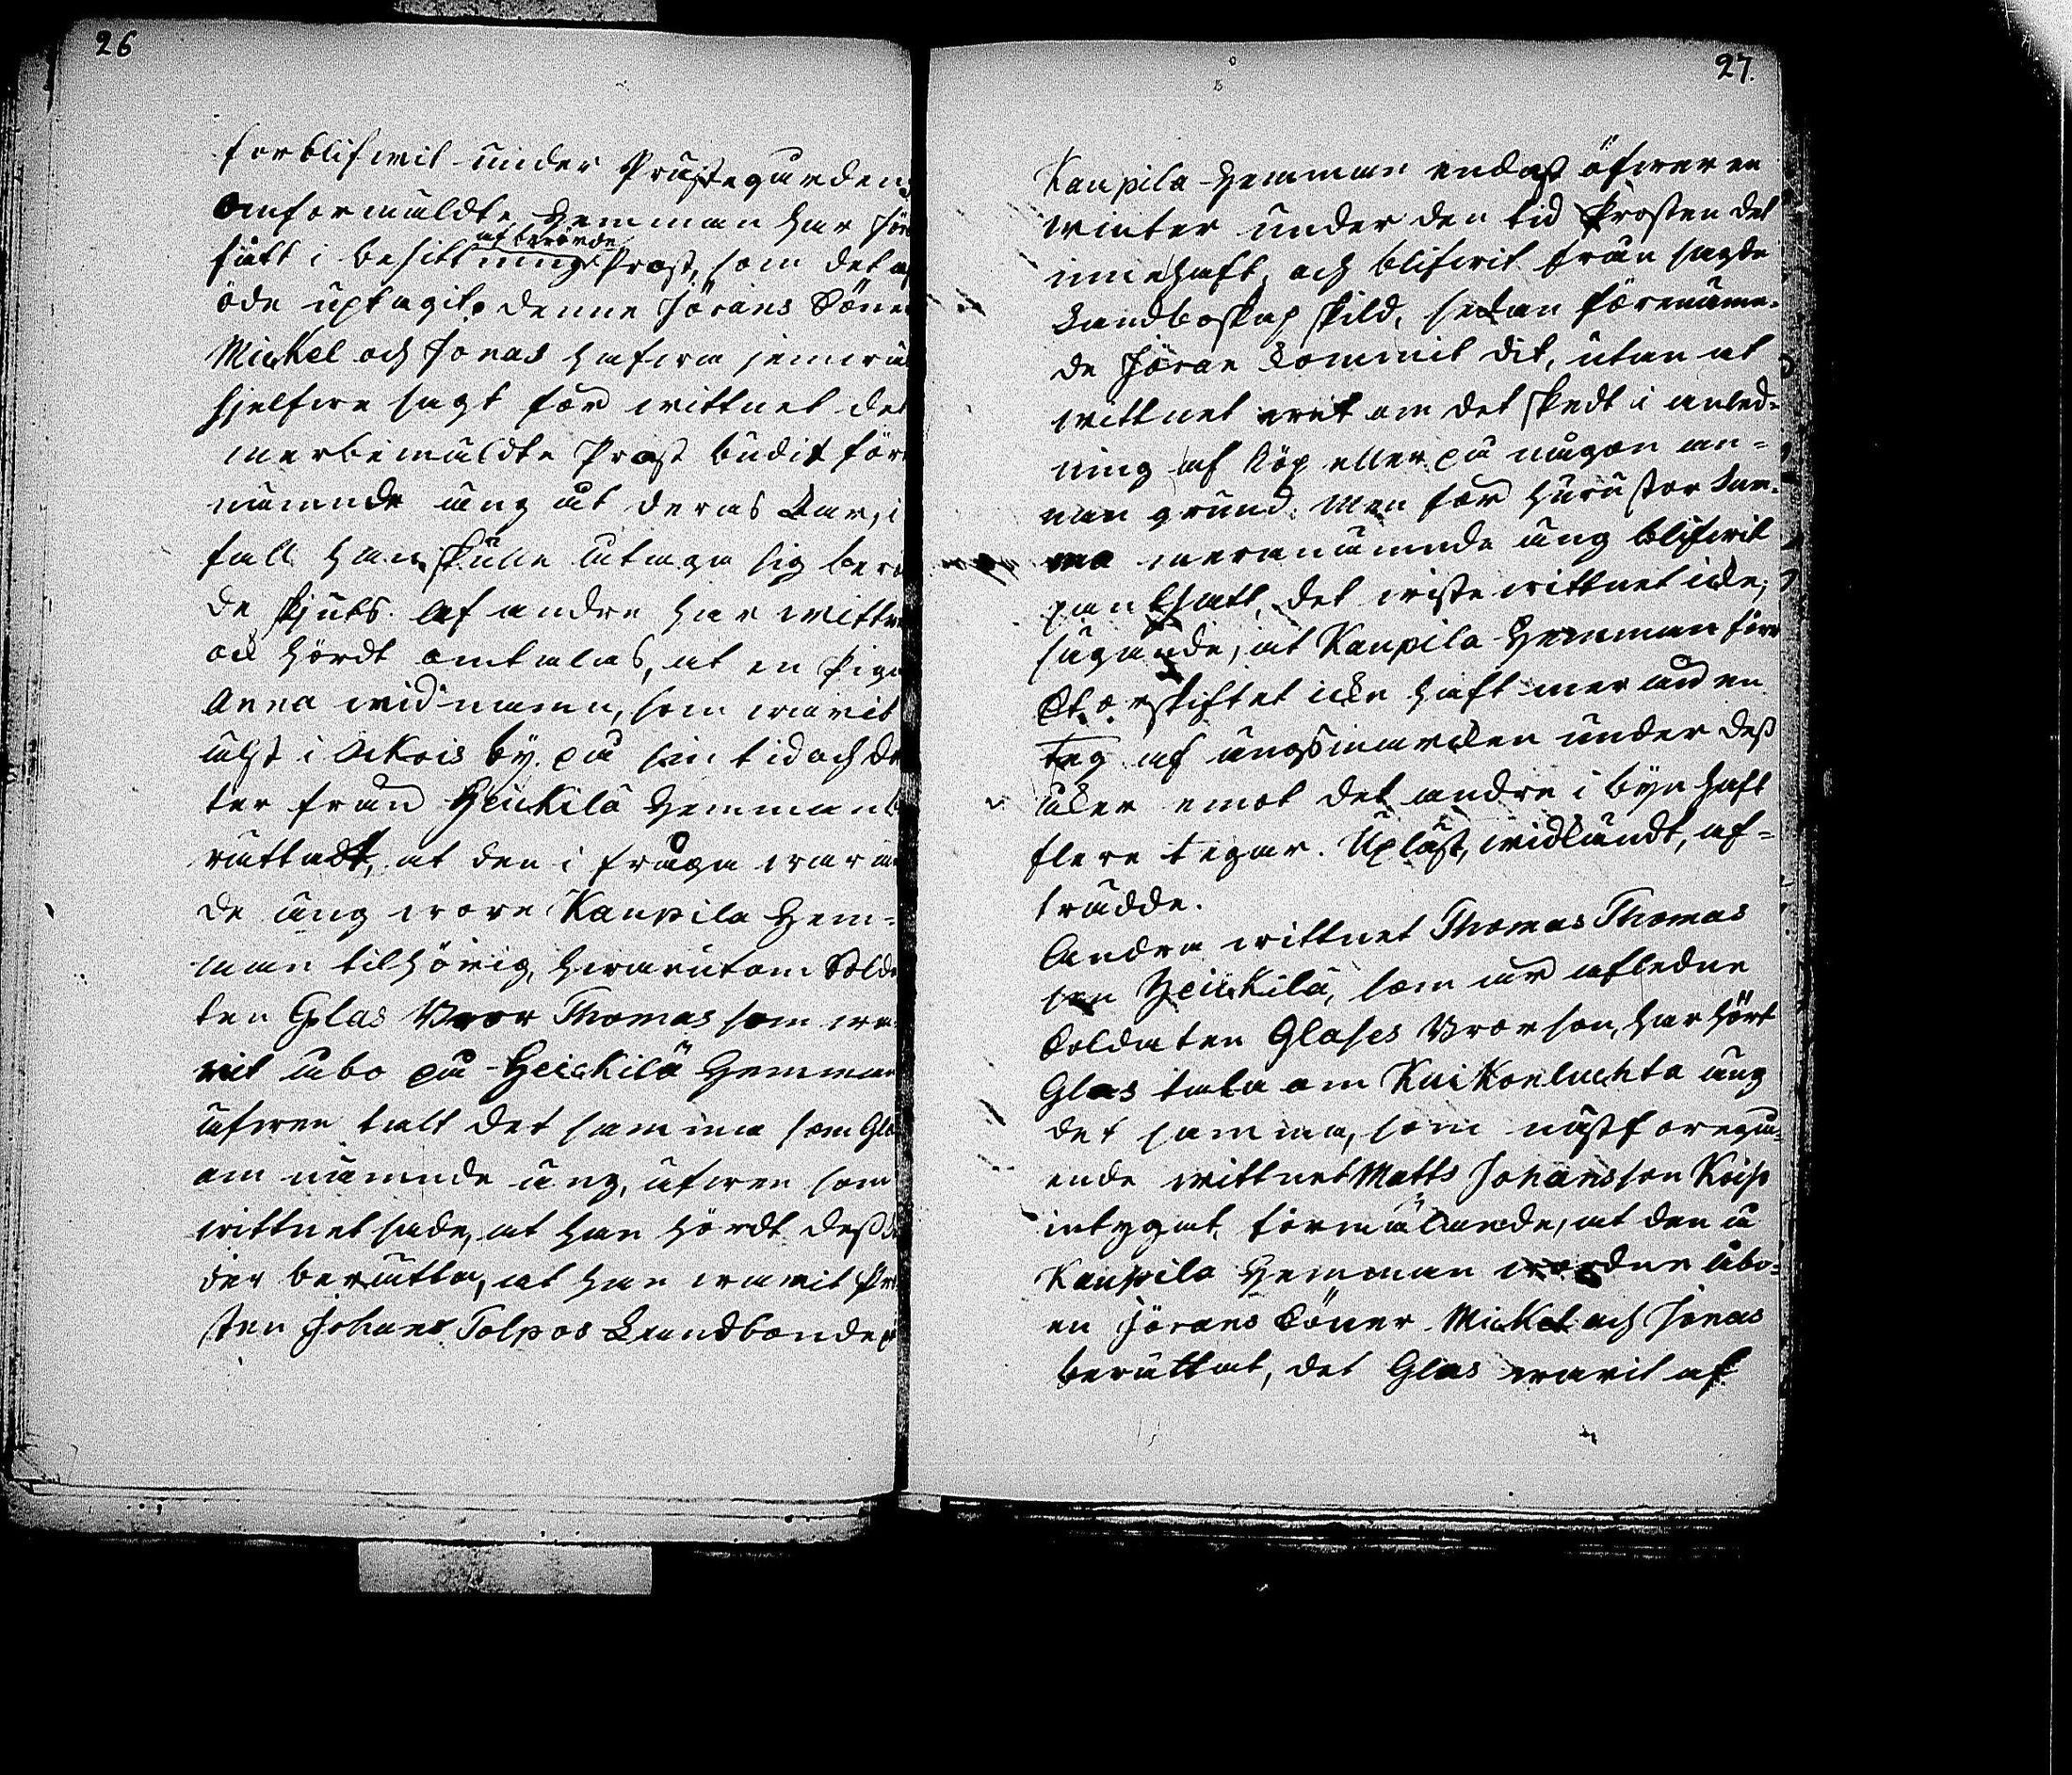 26
förblifwit under Prästegården.
Omförmäldte Hemman har Jör
fått i besittning af berörde Prost, som det af
öde uptagit. denne Jörans Söner
Mickel och Jonas hafwa jemwäl
sjelfwe sagt för wittnet det
merbemäldte Prost budit för
nämnde äng åt deras Far, i
fall han skulle åtaga sig berö
de skjuts. Af andre har wittne
ock hördt omtalas, at en Piga
Anna widnamn, som warit
älst i Ackois by på sin tid och de
ter från Heickilä Hemman b
rättadt, at den i fråga waran
de äng wore Kaupila Hem=
man tilhörig, hwarutom Solda
ten Glas Bror Thomas som wa
rit åbo på Heickilä Hemman
äfwen talt det samma som Gla
om nämnde äng, äfwen som
wittnet sade, at han hördt dess
der berätta, at han warit Pro
sten Johans Tolpos Landbonde på
27.
Kaupila Hemman endast öfwer en
winter under den tid Prosten det
innehaft, och blifwit från sagde
Landboskap skild, sedan förenämn=
de Jöran kommit dit, utan at
wittnet wet om det skedt i anled=
ning af köp eller på någon an=
nan grund. Men för huru stor Sum=
ma meranämnde äng blifwit
pantsatt, det wiste wittnet icke;
sägande, at Kaupila Hemman före
Storskiftet icke haft mer än en
teg af ängsmarcken under dess
åker emot det andre i byn haft
flere tegar. Upläst, widkändt, af=
trädde.
Andra wittnet Thomas Thomas
son Heickilä, som är afledne
Soldaten Glases Brorson, har hört
Glas tala om Kuikonluchta äng
det samma, som nästföregå=
ende wittnet Matts Johansson Knip
intygat, förmälande, at den å
Kaupila Hemman wordne åbo=
en Jörans Söner Mickel och Jonas
berättat, det Glas warit af